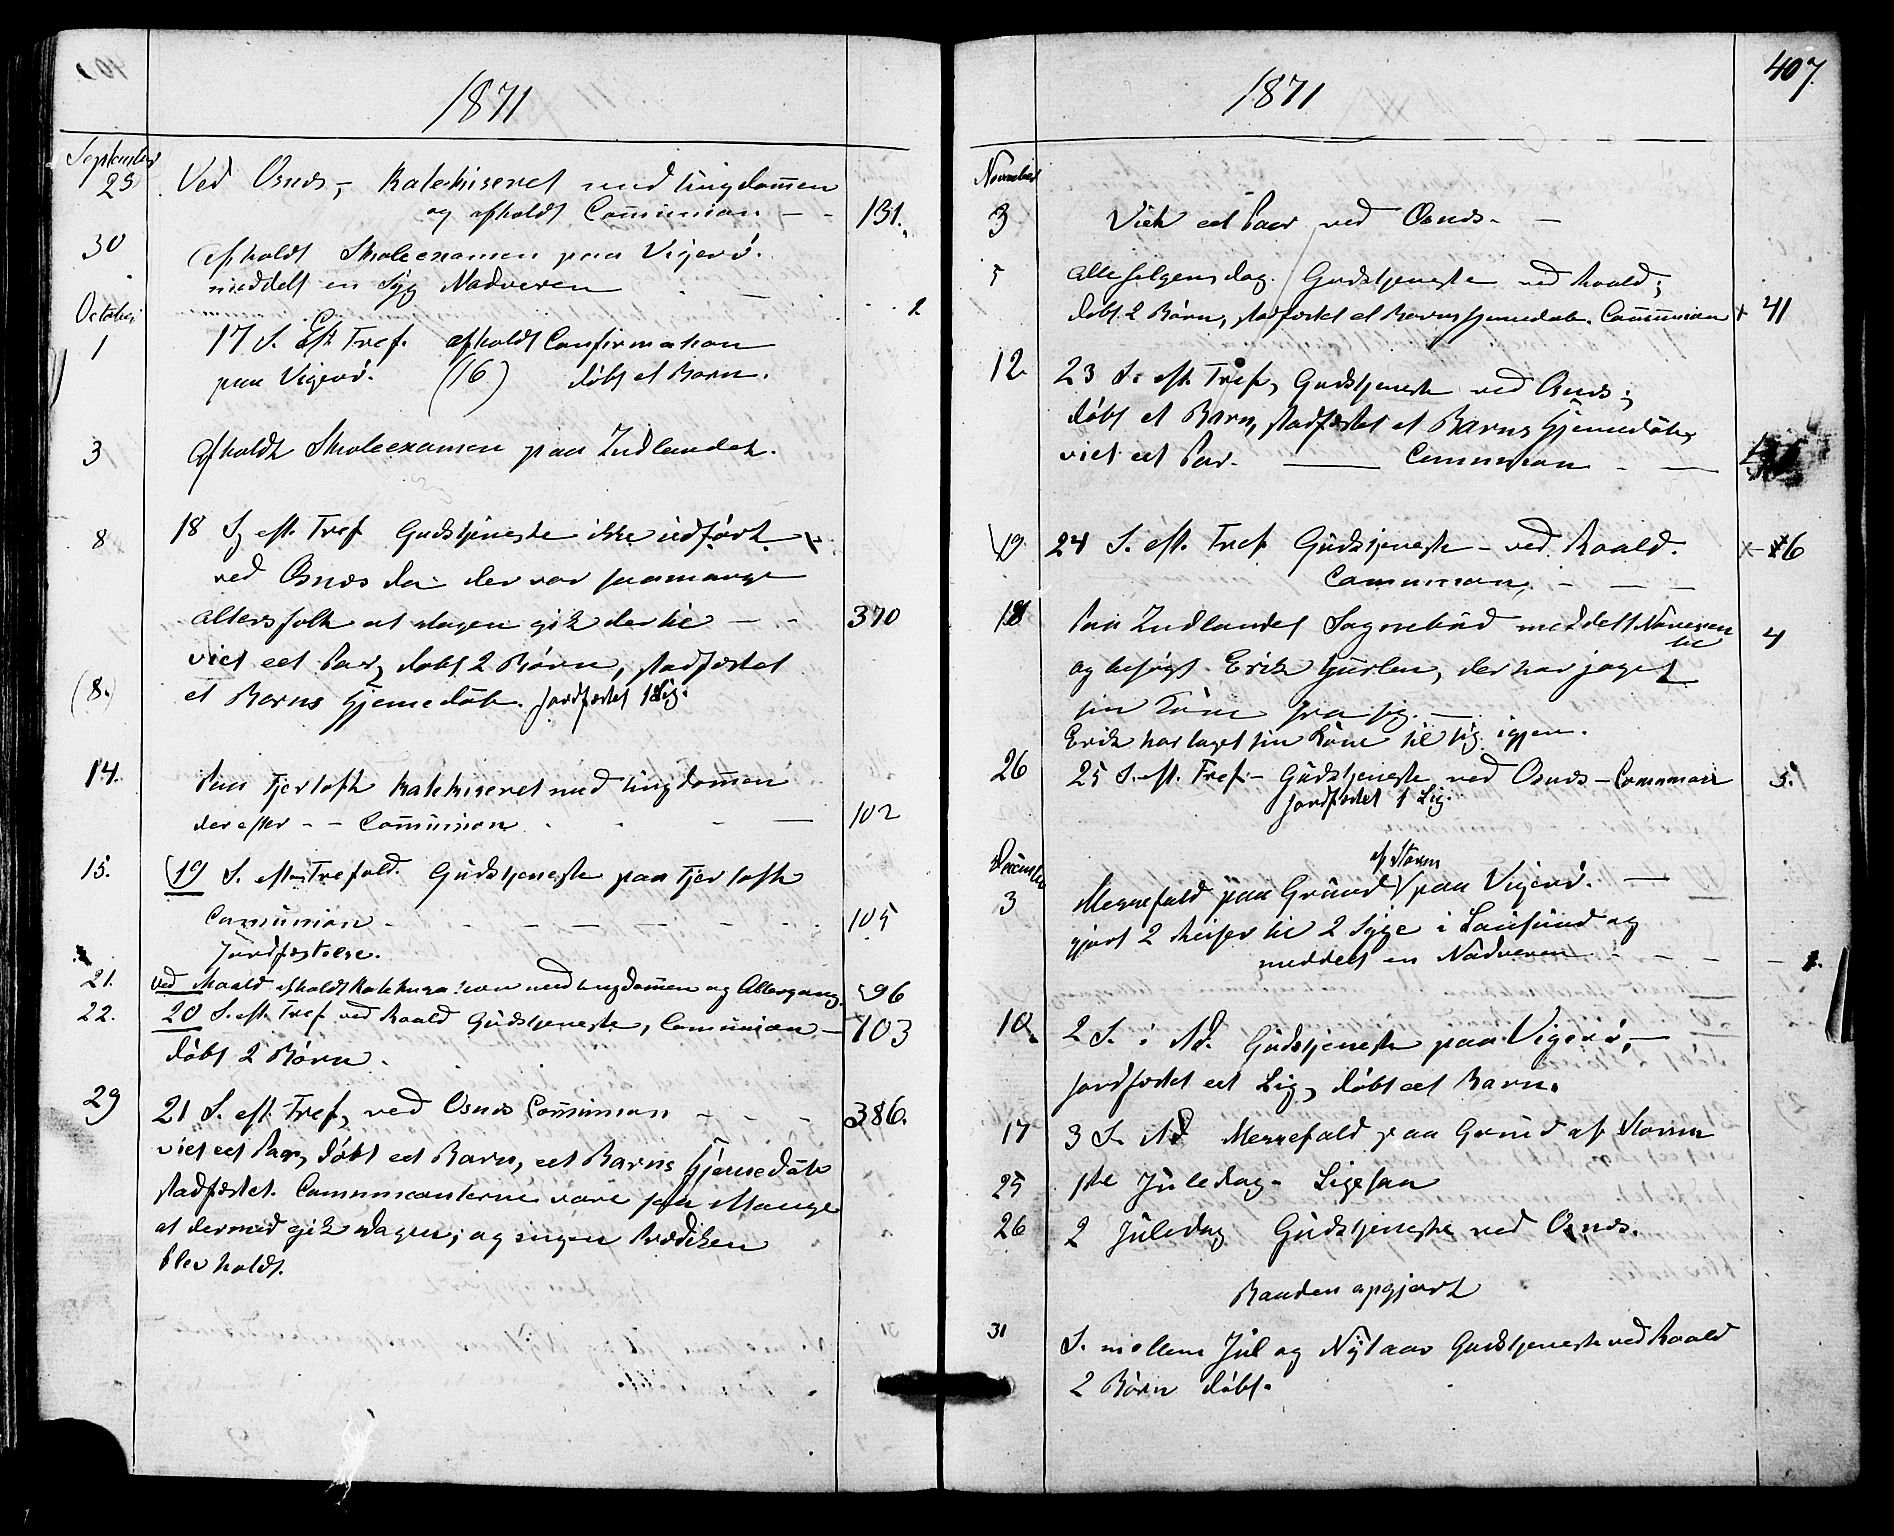 1871
September
23 Ved Osnæs, Katekiseret med Ungdom̅en
og afholdt Com̅union - - 131.
30 Afholdt Skoleexamen paa Vigerö.
meddelt en Syg Nadveren - 1
October
1 17 S. Eft Tref. afholdt Confirmation
paa Vigerö. (16) døbt et Barn.
3 Afholdt Skoleexamen paa Indlandet.
8 18 S eft. Tref Gudstjeneste ikke udført
ved Osnæs da der var saamange
altersfolk at dagen gik dertil - - 370
viet eet Par, døbt 2 Børn, stadfæstet
(8.) et Barns Hjemmedåb. Jordfæstet 1 Lig.
14. Paa Fjertoft Katekiseret med Ungdom̅en
derefter - - Com̅union - 102
15. 19 S. efter Trefold. Gudstjeneste paa Fjertoft
Com̅union - - - - 105
Jordfæstelse.
21. Ved Roald afholdt Katekisation med ungdom̅en og Altergang. 96
22. 20 S. eft. Tref ved Roald Gudstjeneste, Com̅union - 103
døbt 2 Børn.
29 21 S. eft. Tref, ved Osnæs Com̅union - - - 386.
viet eet Par, døbt eet Barn, eet Barns Hjemmedåb
stadfæstet. Communicanterne vare saa Mange
at dermed gik dagen; og ingen Prædiken
blev holdt.
407.
1871
November
3 Viet eet Paar ved Osnæs. -
5 Allehelgensdag. Gudstjeneste ved Roald;
døbt 2 Børn, stadfæstet et Barns hjemmedåb. Com̅union + 41
12. 23 S. eft. Tref, Gudstjeneste ved Osnæs;
døbt et Barn, stadfæstet et Barns Hjemmedåb,
viet eet Par. - Communion - -
19 24 S. eft. Tref Gudstjeneste - ved Roald. x - 6
Communion, - - -
18 Paa Indlandet Sognebud meddelt Naveren 4
til
og besøgt Erik, der har jaget
sin Kone fra sig. -
Erik har taget sin Kone til sig igjen.
26 25 S. eft. Tref. - Gudstjeneste ved Osnæs - Communion 5.
Jordfæstet 1 Lig.
December
af Storm
3 Messefald paa Grund paa Vigerö. -
gjort 2 Reiser til 2 Syge i og
meddelt en Nadveren - - - - 1.
10. 2 S. i Ad. Gudstjeneste paa Vigerö, -
jordfæstet eet Lig, døbt eet Barn.
17 3 S. Ad Messefald paa Grund af Storm
25 1ste Juledag - Ligesaa
26 2 Juledag Gudstjeneste ved Osnæs.
opgjort
31 S. mellem Jul og Nytaar Gudstjeneste ved Roald
2 Børn døbt.